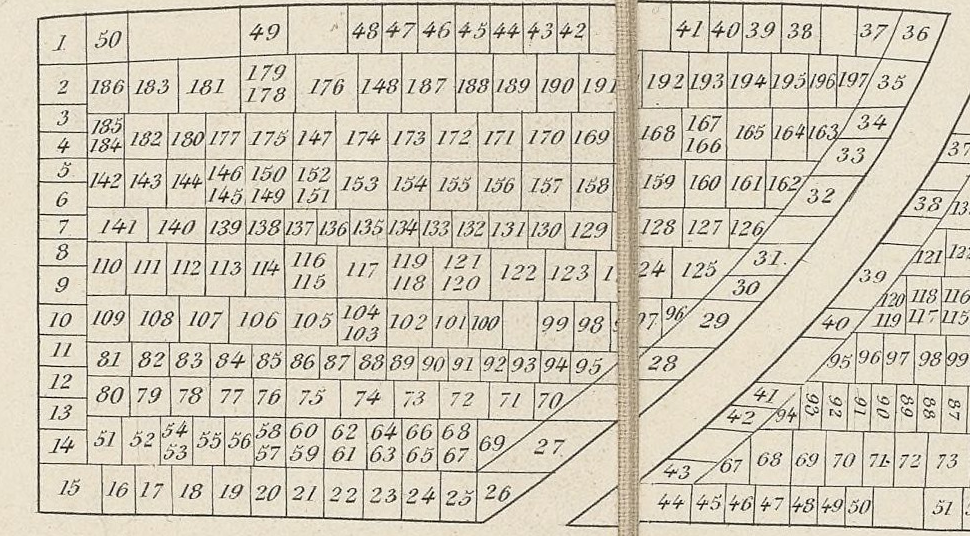 1 50 49 48 47 46 45 44 43 42 41 40 39 38 37 36
2 186 183 181 179 178 176 148 187 188 189 190 191 192 193 194 195 196 197 35
3 4 185 184 182 180 177 175 147 174 173 172 171 170 169 168 167 166 165 164 163 34 33 37
5 6 142 143 144 146 145 150 149 152 151 153 154 155 156 157 158 159 160 161 162 32 38
7 141 140 139 138 137 136 135 134 133 132 131 130 129 128 127 126
8 9 110 111 112 113 114 116 115 117 119 118 121 120 122 123 125 31 30 39 121
10 109 108 107 106 105 104 103 102 101 100 99 98 97 96 29 40 120 119 118 117 116 115
11 81 82 83 84 85 86 87 88 89 90 91 92 93 94 95 28 95 96 97 98 99
12 13 80 79 78 77 76 75 74 73 72 71 70 41 42 94 93 92 91 90 89 88 87
14 51 52 54 53 55 56 58 57 60 59 62 61 64 63 66 65 68 67 69 27 43 67 68 69 70 71 72 73
15 16 17 18 19 20 21 22 23 24 25 26 44 45 46 47 48 49 50 51